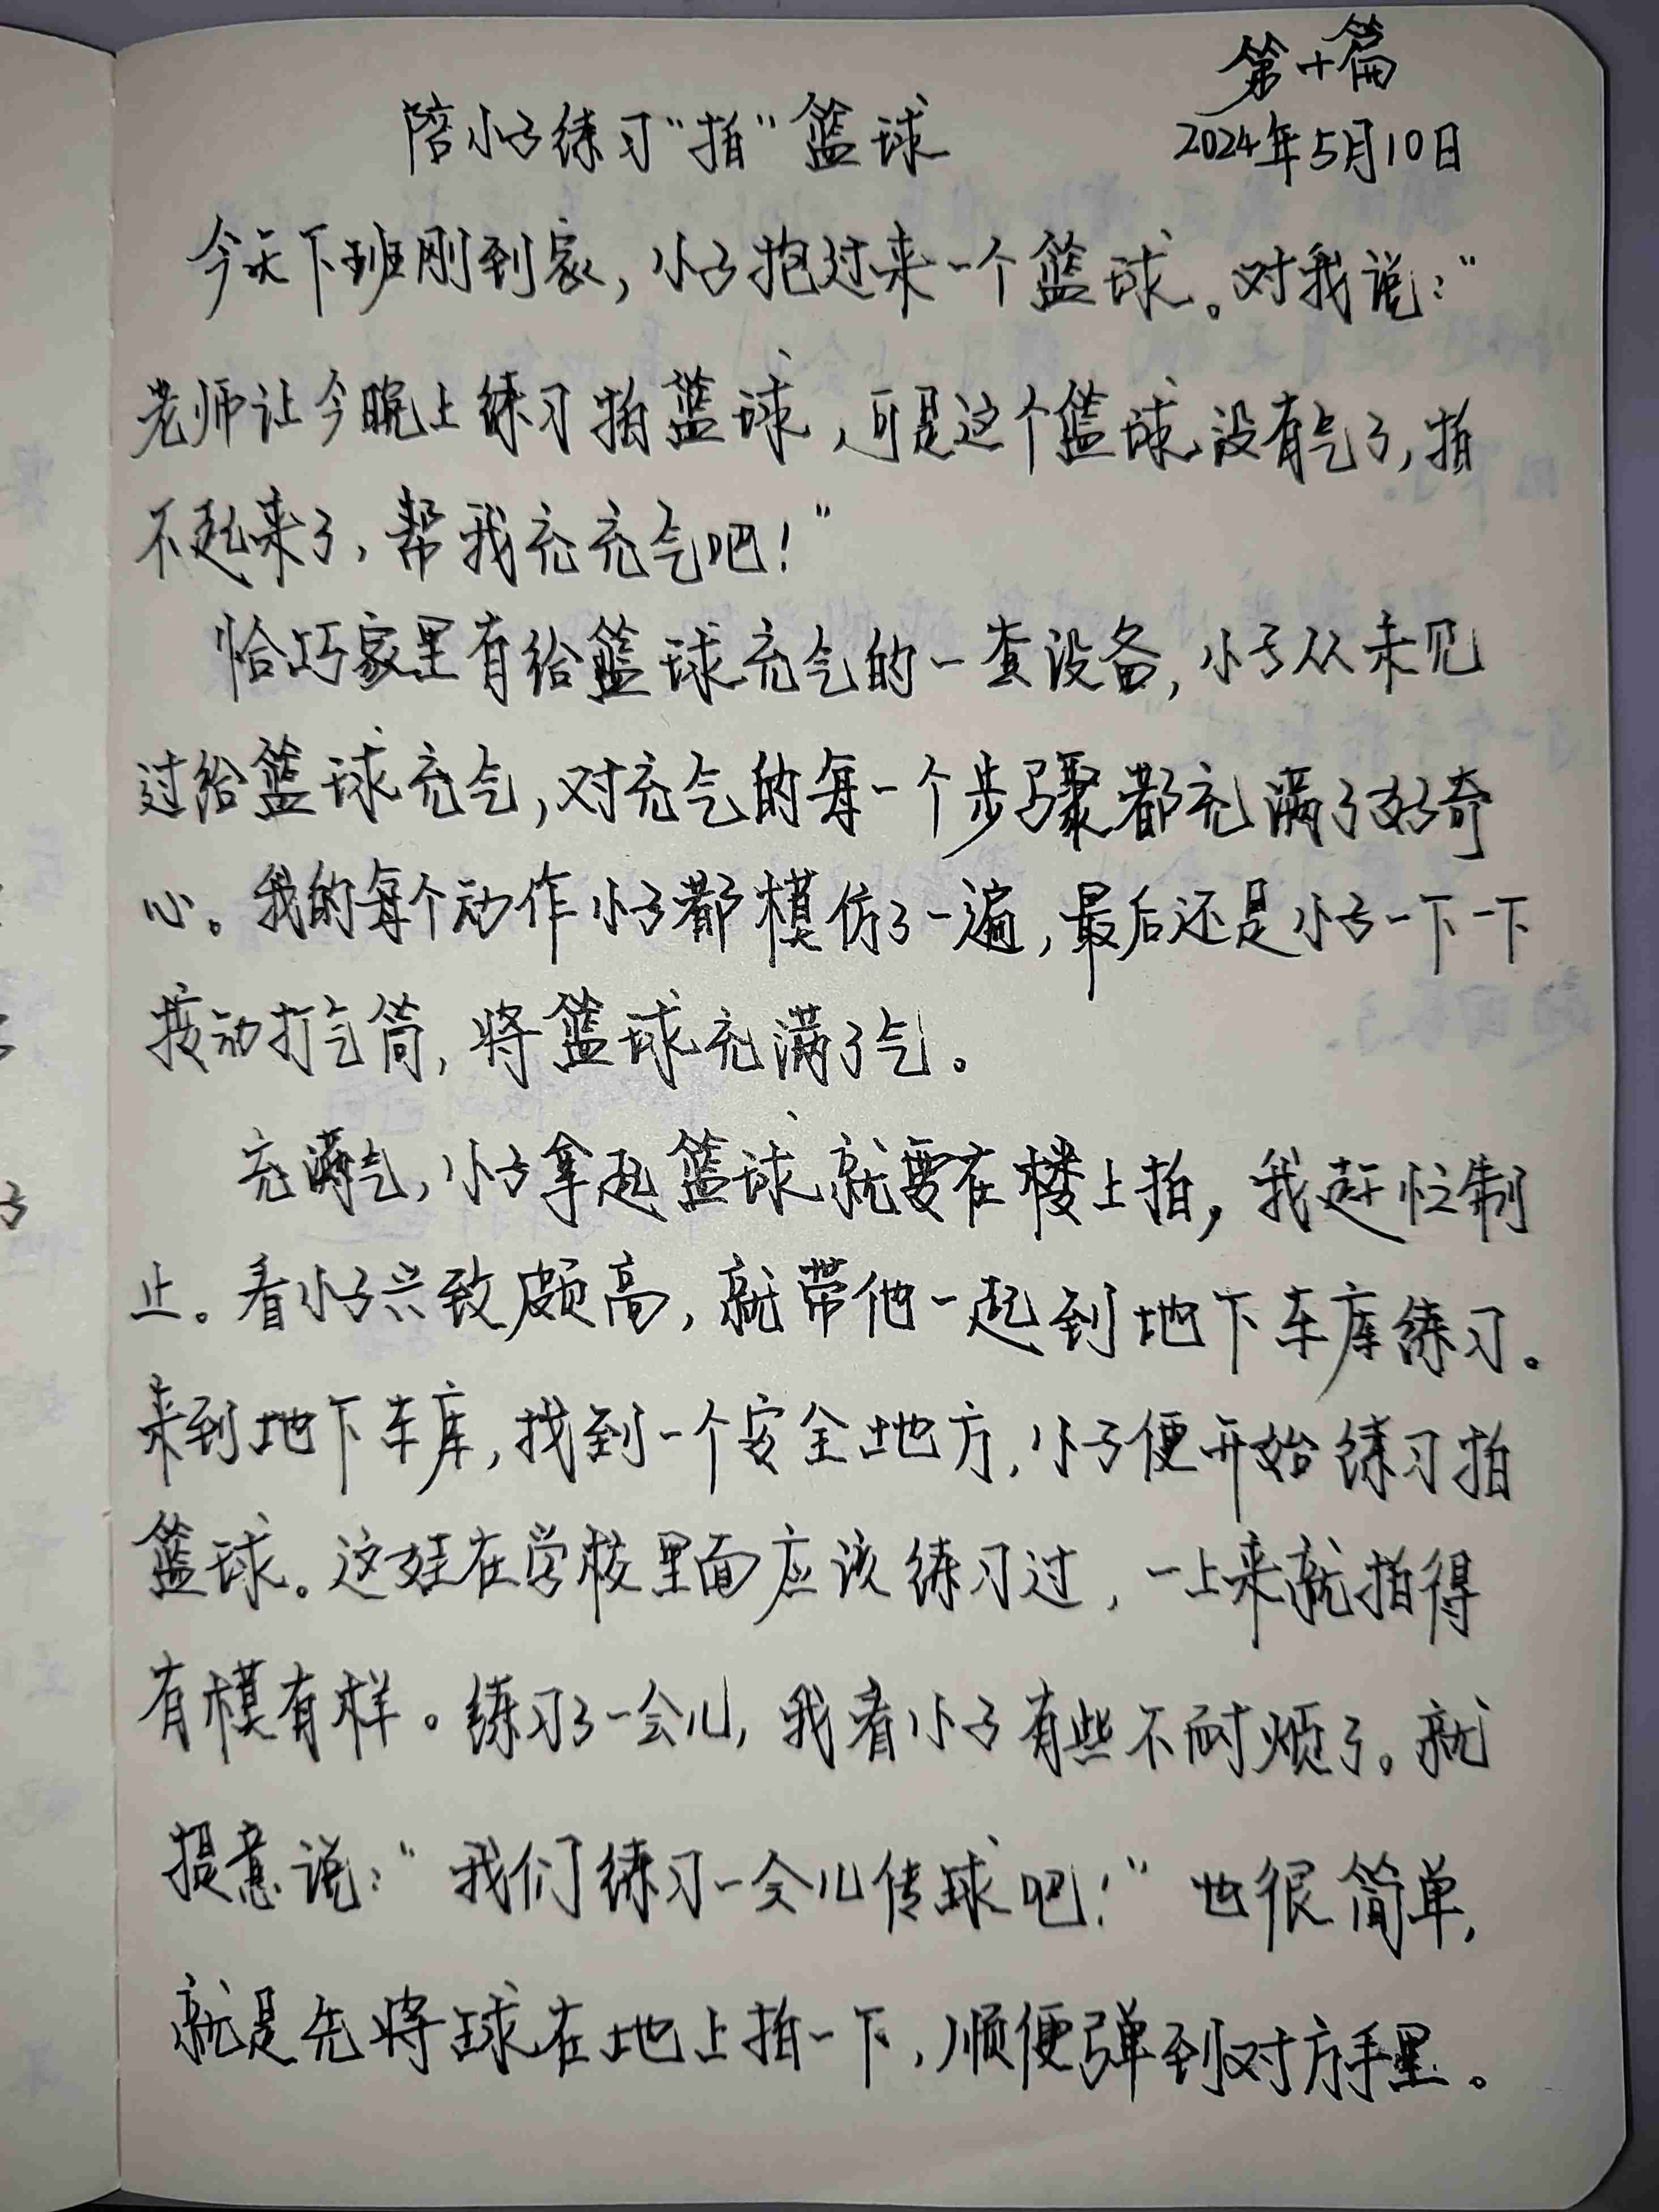 第十篇
陪小子练习"拍"篮球
2024年5月10日
今天下班刚到家,小子抱过来一个篮球。对我说:"
老师让今晚上练习拍篮球,可是这个篮球没有气了,拍
不起来了,帮我充充气吧!"
恰巧家里有给篮球充气的一套设备,小子从未见
过给篮球充气,对充气的每一个步骤都充满了好奇
心。我的每个动作小子都模仿了一遍,最后还是小子一下一下
按动打气筒,将篮球充满了气。
充满气,小子拿起篮球就要在楼上拍,我赶忙制
止。看小子兴致颇高,就带他一起到地下车库练习。
来到地下车库,找到一个安全地方,小子便开始练习拍
篮球。这娃在学校里面应该练习过,一上来就拍得
有模有样。练习了一会儿,我看小子有些不耐烦了。就
提意说:"我们练习一会儿传球吧!"也很简单,
就是先将球在地上拍一下,顺便弹到对方手里。